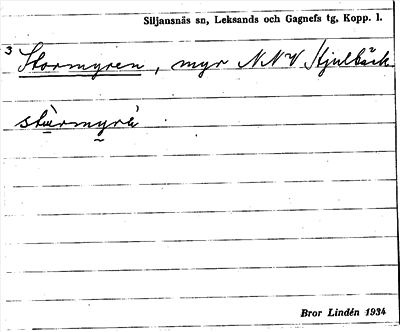 Siljansnäs sn, Leksands och Gagnefs tg, Kopp. l.
3 Stormyren, myr NNV Hjulbäck
Bror Lindén 1934